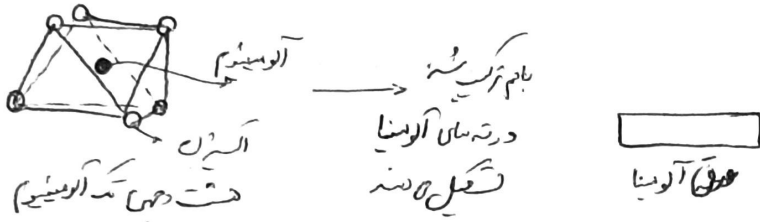 آلومینیوم
اکسیژن
هشت وجهی تک آلومینیوم
باهم ترکیب شده
ورقه های آلومینا
تشکیل می دهند
ورقه آلومینا